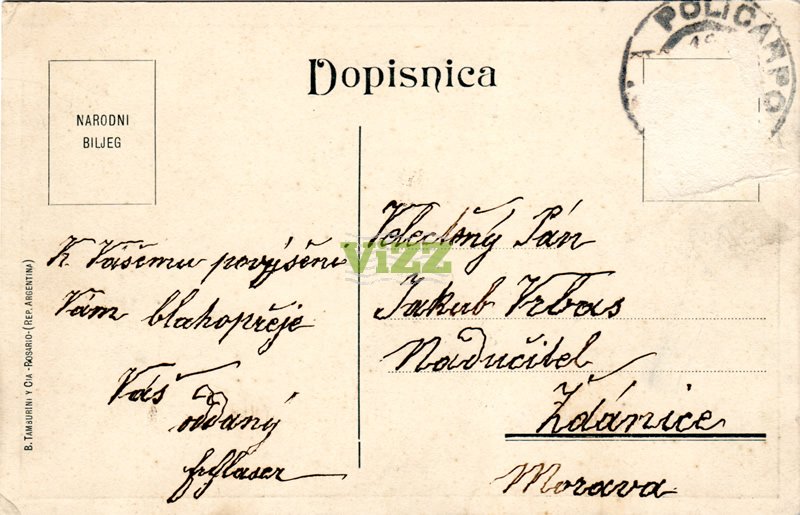 POLICARPO
Dopisnica
NARODNI
BILJEG
K. Vášemu povýšení
Vám blahopřeje
Váš
oddaný
Veléctěný Pán
Jakub Vrbas
Nadučitel
Ždánice
Morava
VIZZ
B. TAMBURINI Y CIA - ROSARIO - (REP. ARGENTINA)